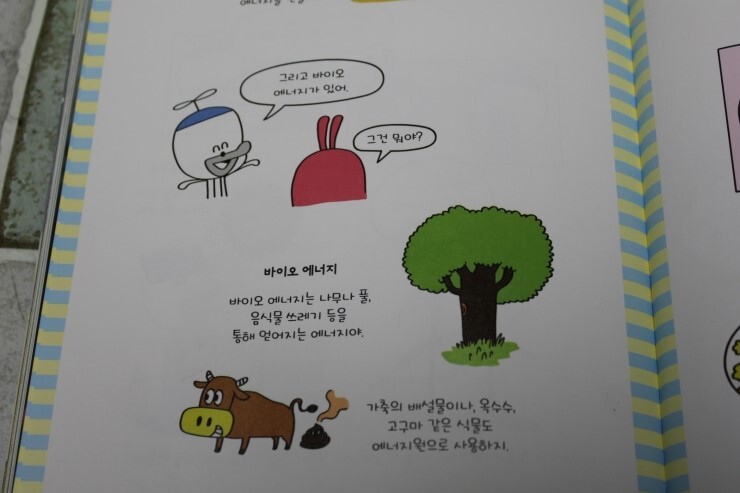 그리고 바이오
에너지가 있어.
그건 뭐야?
바이오 에너지
바이오 에너지는 나무나 풀,
음식물 쓰레기 등을
통해 얻어지는 에너지야.
가축의 배설물이나, 옥수수,
고구마 같은 식물도
에너지원으로 사용하지.